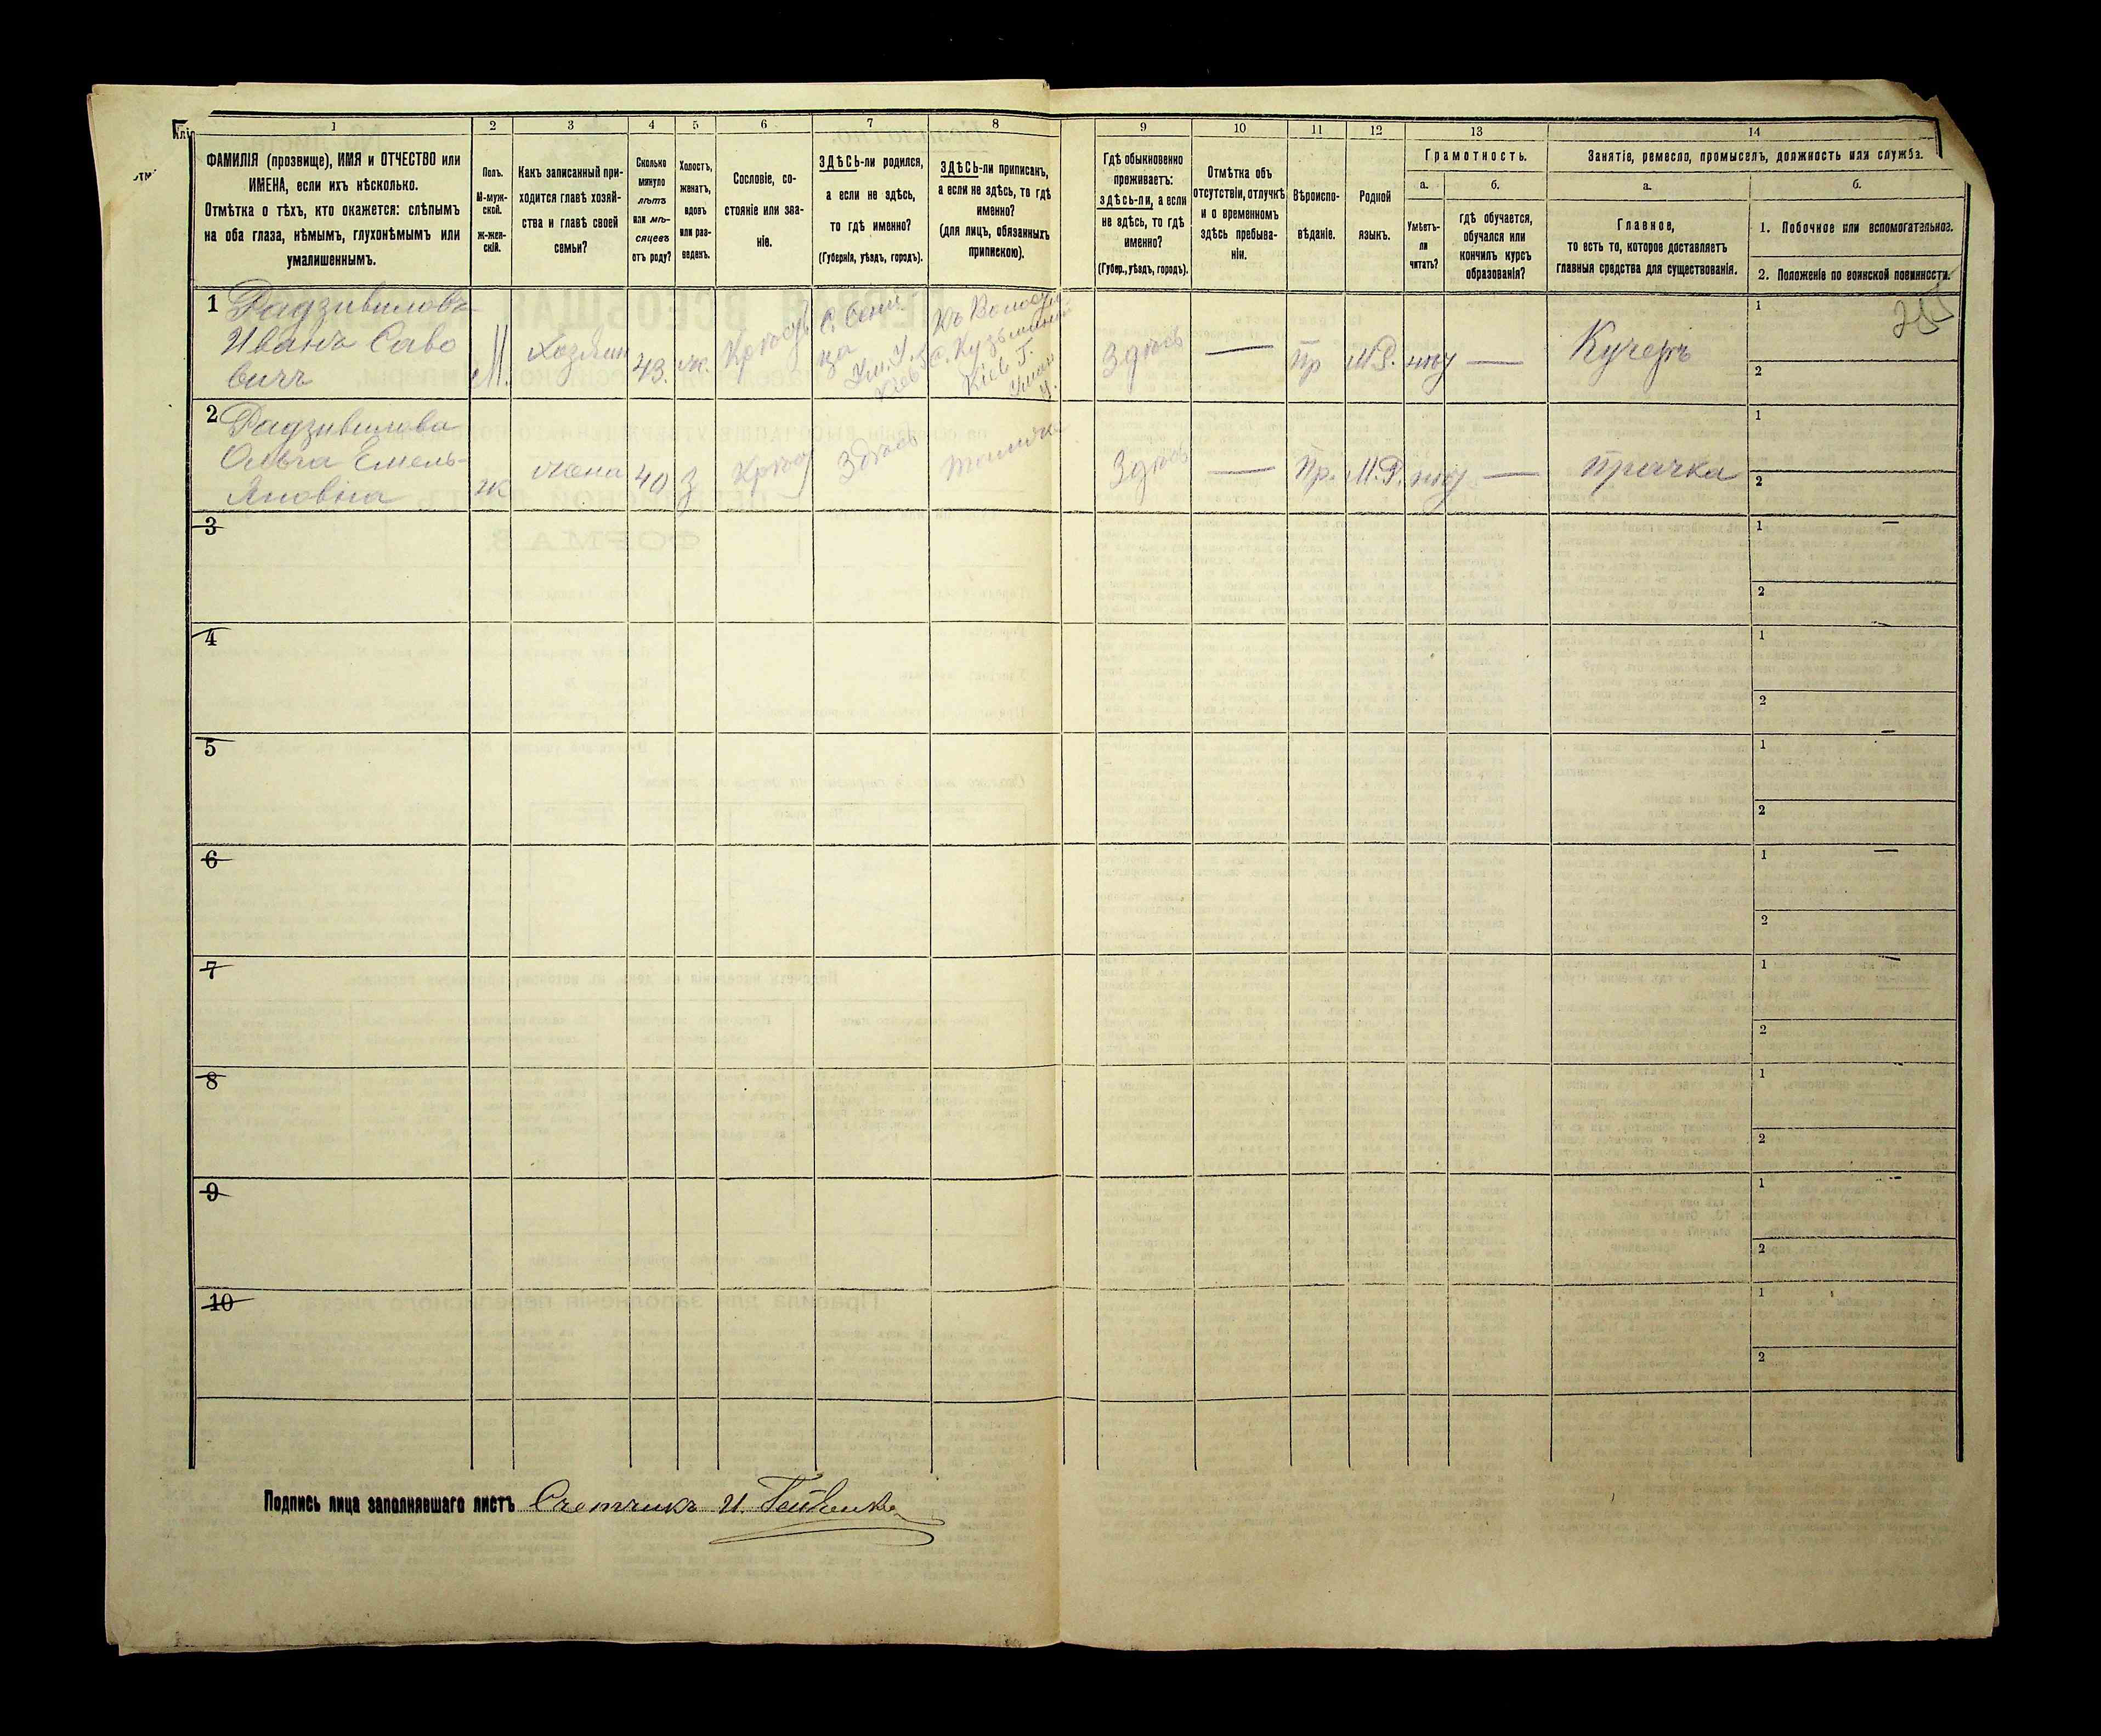 1 2 3 4 5 6 7 8 9 10 11 12 13 14
ФАМИЛІЯ (прозвище), ИМЯ и ОТЧЕСТВО или
ИМЕНА, если ихъ нѣсколько.
Отмѣтка о тѣхъ, кто окажется: слѣпымъ
на оба глаза, нѣмымъ, глухонѣмымъ или
умалишеннымъ.
Полъ.
М-муж-
ской.
ж-жен-
скій.
Какъ записанный при-
ходится главѣ хозяй-
ства и главѣ своей
семьи?
Сколько
минуло
лѣтъ
или мѣ-
сяцевъ
отъ роду?
Холостъ,
женатъ,
вдовъ
или раз-
веденъ.
Сословіе, со-
стояніе или зва-
ніе.
ЗДѢСЬ-ли родился,
а если не здѣсь,
то гдѣ именно?
(Губернія, уѣздъ, городъ).
ЗДѢСЬ-ли приписанъ,
а если не здѣсь, то гдѣ
именно?
(для лицъ, обязанныхъ
припискою).
Гдѣ обыкновенно
проживаетъ:
здѣсь-ли, а если
не здѣсь, то гдѣ
именно?
(Губер., уѣздъ, городъ).
Отмѣтка объ
отсутствіи, отлучкѣ
и о временномъ
здѣсь пребыва-
ніи.
Вѣроиспо-
вѣданіе.
Родной
языкъ.
Грамотность.
а.
Умѣетъ-
ли
читать?
б.
гдѣ обучается,
обучался или
кончилъ курсъ
образованія?
Занятіе, ремесло, промыселъ, должность или служба.
а.
Главное,
то есть то, которое доставляетъ
главныя средства для существованія.
б.
1. Побочное или вспомогательное.
2. Положеніе по воинской повинности.
1 Радзивиловъ
Иванъ Саво
вичъ
М.
Хозяин
43.
ж.
С.
Ум. У.
Къ
с.
Кіев. Г.
Уман
У.
Здѣсь
—
Пр
М.Р.
нѣт
—
Кучеръ
1
2
2 Радзивилова
Ольга Емель-
яновна
ж
жена
40
З
Здѣсь
Здѣсь
—
Пр.
М.Р.
нѣт
—
прачка
1
2
3
1
2
4
1
2
5
1
2
6
1
2
7
1
2
8
1
2
9
1
2
10
1
2
Подпись лица заполнявшаго листъ Счетчикъ И.